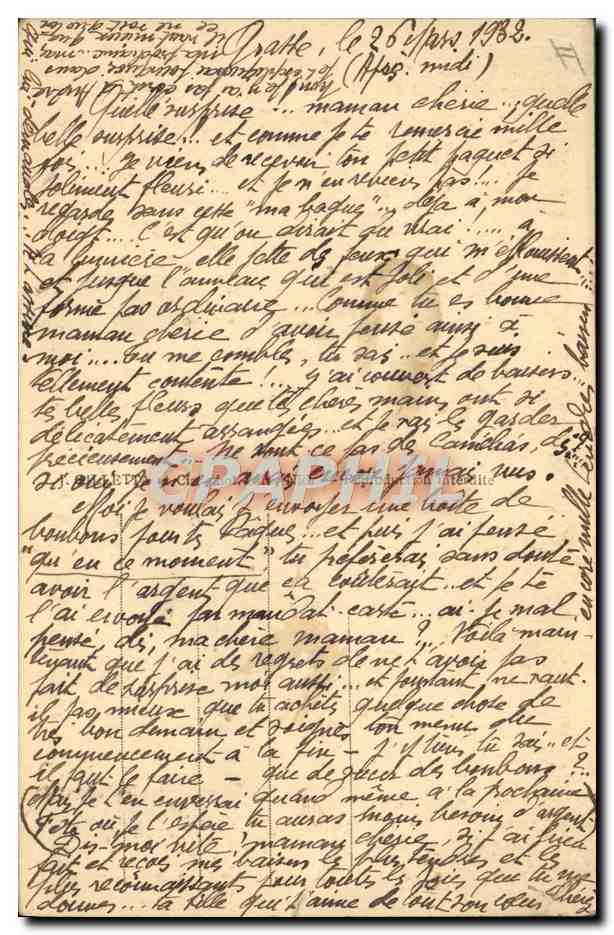 le 26 Mars 1932.
(Après midi)
II
Quelle surprise... maman chérie... quelle
belle surprise!.. et comme je te remercie mille
fois... Je viens de recevoir ton petit paquet si
joliment fleuri... et je n'en reviens pas!... Je
regarde sans cesse "ma bague"... déjà à mon
doigt... C'est qu'on dirait du vrai!.... à
la lumière elle jette des feux qui m'éblouissent
et jusque l'anneau qui est joli et d'une
forme pas ordinaire... Comme tu es bonne
maman chérie d'avoir pensé ainsi à
moi.... tu me combles, tu sais.. et je suis
tellement contente!... J'ai couvert de baisers...
tes belles fleurs que tes chères mains ont si
délicatement arrangées... et je vais les garder
précieusement. Ne sont-ce pas de camélias, dis?
CPAPHIL
Reproduction interdite
jamais vus.
et moi je voulais t'envoyer une boîte de
bonbons pour tes Pâques... et puis j'ai pensé
"qu'en ce moment" tu préférerais sans doute
avoir l'argent que ça coûterait... et je te
l'ai envoyé par mandat-carte... ai-je mal
pensé, dis, ma chère maman?... Voilà main-
tenant que j'ai des regrets de ne t'avoir pas
fait de surprise moi aussi... et pourtant ne vaut-
il pas mieux que tu achètes quelque chose de
très bon demain et soignes ton menu du
commencement à la fin - j'y tiens tu sais.. et
il faut le faire - que de sucer des bonbons?...
(Mais je t'en enverrai quand même à la prochaine
fête où je l'espère tu auras moins besoin d'argent)
Dis-moi vite, maman chérie, si j'ai bien
fait et reçois mes baisers les plus tendres et les
plus reconnaissants pour toutes les joies que tu me
donnes... ta fille qui t'aime de tout son cœur
encore mille tendres baisers